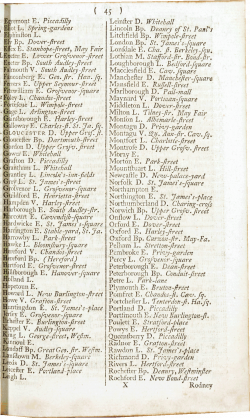 ( 45 )
Egremont E. Piccadilly
Spring-gardens
Elphinston L.
Dover-street
Stanhope-street, May Fair
Grosvenor-street
Exeter Bp. South Audley-street
Falmouth V. South Audley-street
E. Upper Seymour-street
Fitzwilliam E. Grosvenor-square
Foley L. Chandos-street
L. Wimpole-street
Gage L. Arlington-street
E. Harley-street
Galloway E. Charles-st. St. Ja. sq.
GLOUCESTER D. Upper Gros. st.
Gloucester Bp. Dartmouth-street
Gordon D. Upper Grosv. street
Gower E. Whitehall
Grafton D. Piccadilly
Grantham L. Whitehall
Grantley L. Lincoln's-inn-fields
Grey L. St. James's-square
Grosvenor L. Grosvenor-square
Guildford E. Henrietta-street
Hampden V. Harley-street
Harborough E. South Audley-str.
Harcourt E. Cavendish-square
Hardwicke E. St. James's-square
Harrington E. Stable-yard, St. Ja.
L. Park-street
Hawke L. Bloomsbury-square
Hereford V. Chandos-street
Hereford Bp. (Hereford)
Hertford E. Grosvenor-street
Hillsborough E. Hanover-square
Hopetoun E.
Howard L. New Burlington-street
Howe V. Grafton-street
Huntingdon E. St. James's-place
E. Grosvenor-square
Burlington-street
V. Upper Brook-street
King L. George-street, Westm.
Kinnoul E.
Llandaff Bp. Great Geo. str. Westm.
Lansdown M. Berkeley-square
Leeds D. St. James's-square
Leicester E. Portland-place
Leigh L.
Leinster D. Whitehall
Lincoln Bp. Deanry of St. Paul's
Litchfield Bp. Wimpole-street
London Bp. St. James's-square
Lonsdale E. Cha. st. Berkeley-sq.
Lothian M. Stafford-str. Bond-str.
Loughborough L. Bedford-square
Macclesfield E. Cav. square
Manchester D. Manchester-square
Mansfield E. Russell-street
Marlborough D. Pall-mall
Maynard V. Portman-square
Middleton L. Dover-street
Milton L. Tilney-str. May Fair
Monson L. Albemarle-street
Montagu D. Privy-garden
Montagu V. Qu. Ann-str. Cav. sq.
Montfort L. Charlotte-street
Montrose D. Upper Grosv. street
Moray E.
Morton E. Park-street
Mountstuart L. Hill-street
Newcastle D. New-palace-yard
Norfolk D. St. James's-square
Northampton E.
Northington E. St. James's-place
Northumberland D. Charing-cross
Norwich Bp. Upper Grosv. street
Onslow L. Dover-street
Orford E. Dover-street
Oxford E. Harley-street
Oxford Bp. Curzon-str. May-Fa.
Pelham L. Stretton-street
Pembroke E. Privy-garden
Percy L. Grosvenor-square
Peterborough E. Dean-street
Peterborough Bp. Conduit-street
Petre L. Park-lane
Plymouth E. Bruton-street
Pomfret E. Chandos-st. Cav. sq.
Portchester L. Tenterden-st. Ha. sq.
Portland D. Piccadilly
Portsmouth E. New Burlington-st.
Poulett E. Stratford-place
Powys E. Hertford-street
Queensberry D. Piccadilly
Radnor E. Grafton-street
Rawdon L. St. James's-place
Richmond D. Privy-garden
Rivers L. Hertford-street
Rochester Bp. Deanry, Westminster
Rochford E. New Bond-street
X
Rodney